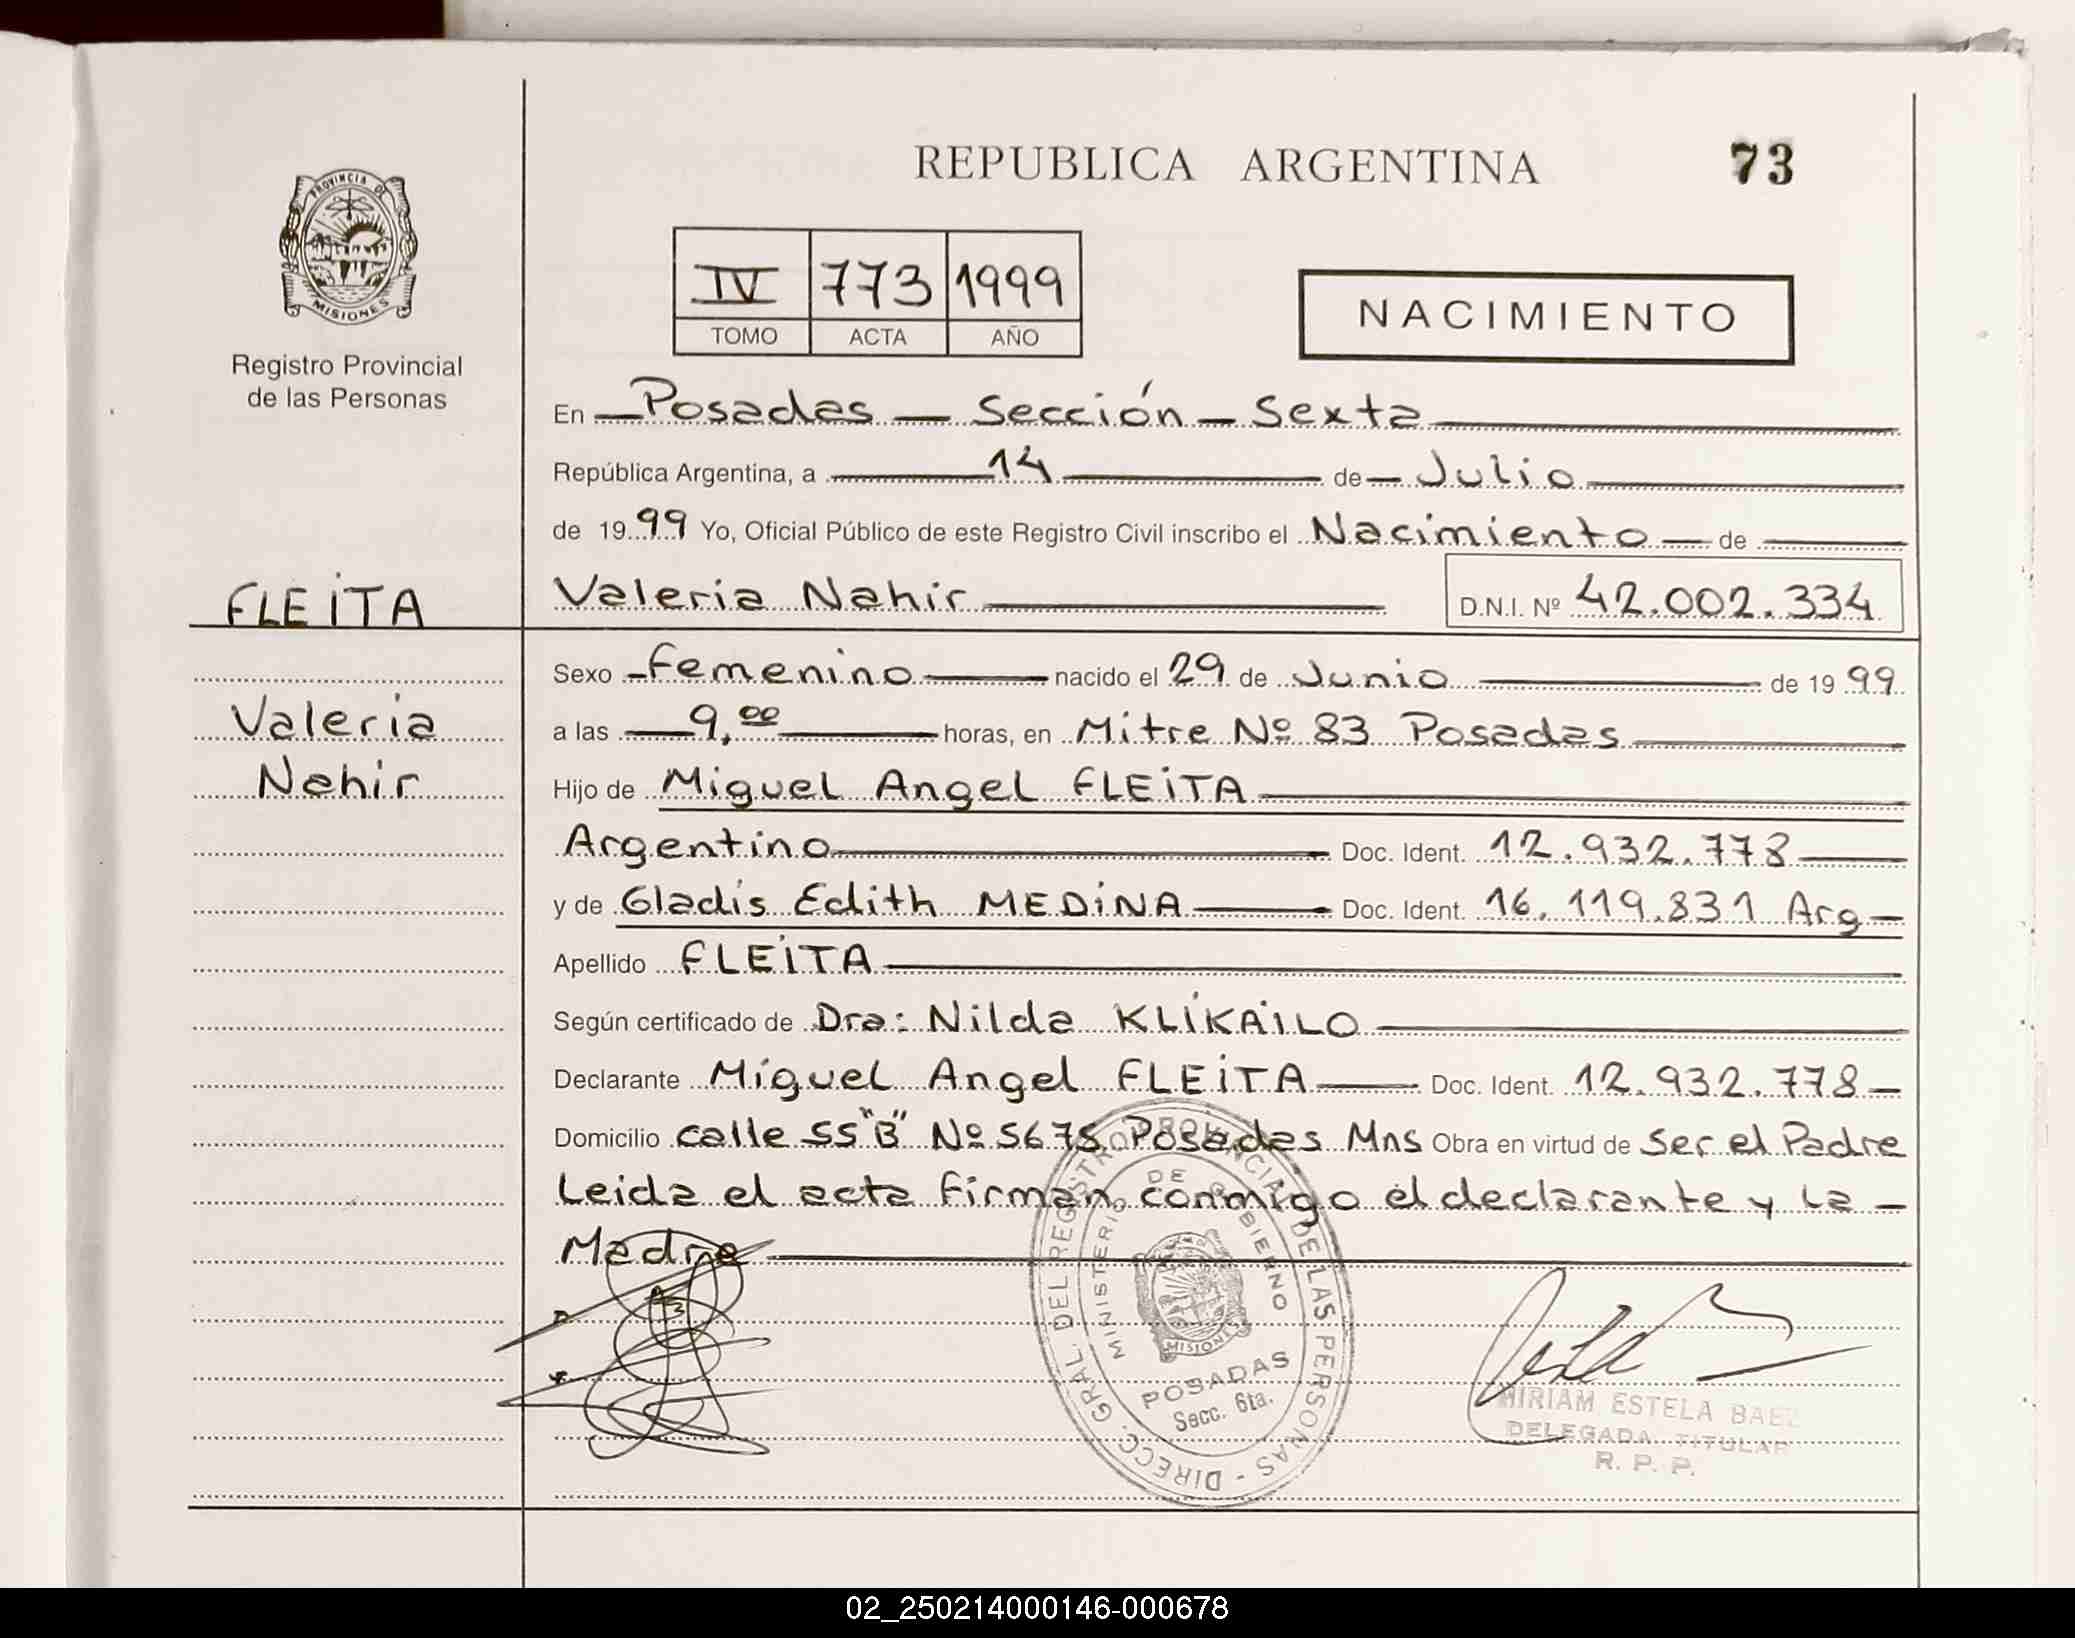 REPUBLICA ARGENTINA
73
PROVINCIA DE
MISIONES
Registro Provincial
de las Personas
IV 773 1999
TOMO ACTA AÑO
NACIMIENTO
En Posadas - Sección - Sexta
República Argentina, a 14 de Julio
de 1999 Yo, Oficial Público de este Registro Civil inscribo el Nacimiento de
FLEiTA
Valeria Nahir D.N.I. Nº 42.002.334
Sexo Femenino nacido el 29 de Junio de 1999
Valeria
a las 9,00 horas, en Mitre Nº 83 Posadas
Nahir
Hijo de Miguel Angel FLEiTA
Argentino Doc. Ident. 12.932.778
y de Gladis Edith MEDiNA Doc. Ident. 16.119.831 Arg
Apellido FLEiTA
Según certificado de Dra: Nilda KLiKAiLO
Declarante Miguel Angel FLEiTA Doc. Ident. 12.932.778
Domicilio calle SS "B" Nº 5675 Posadas Mns Obra en virtud de Ser el Padre
Leida el acta firman conmigo el declarante y la
Madre
DIRECC. GRAL. DEL REGISTRO PROVINCIAL DE LAS PERSONAS -
MINISTERIO DE GOBIERNO
MISIONES
POSADAS
Secc. 6ta.
MIRIAM ESTELA BAEZ
DELEGADA TITULAR
R. P. P.
02_250214000146-000678